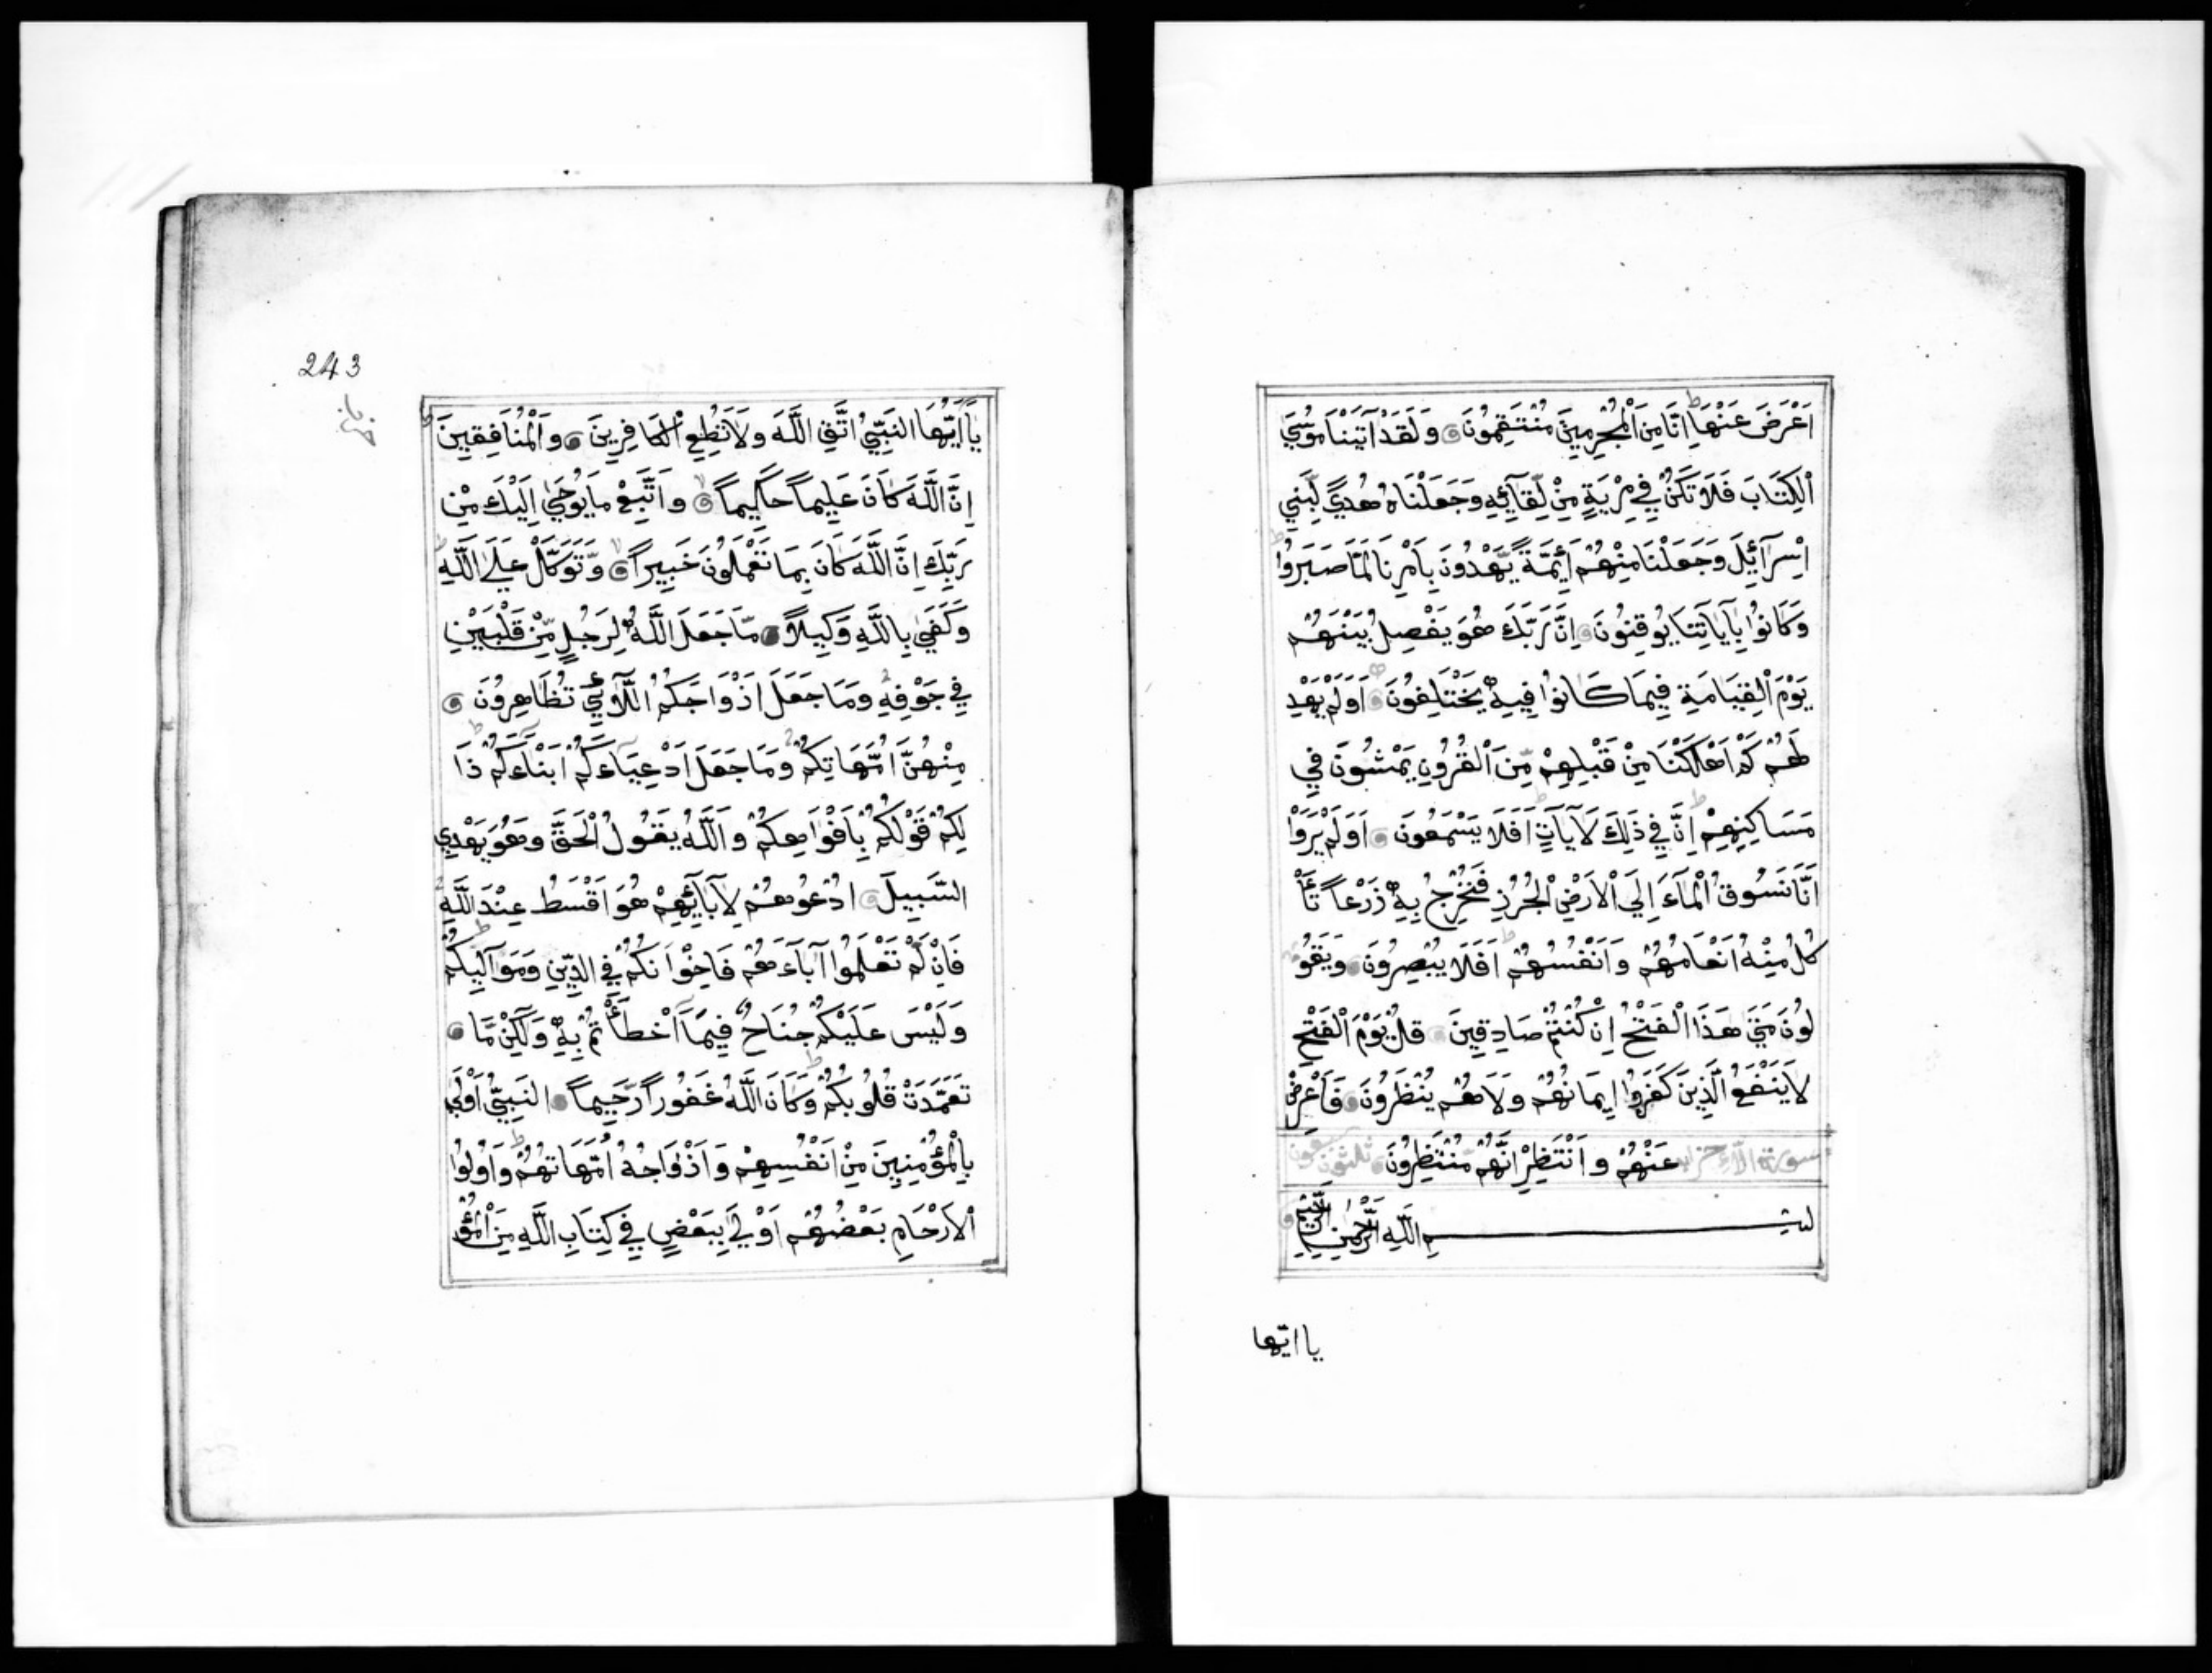 اَعْرَضَ عَنْهَا اِنَّا مِنَ الْمُجْرِمِينَ مُنْتَقِمُونَ وَلَقَدْ آتَيْنَا مُوسَي
الْكِتَابَ فَلَا تَكُنْ فِي مِرْيَةٍ مِنْ لِّقَآئِهِ وَجَعَلْنَاهُ هُدًي لِّبَنِي
اِسْرَآئِلَ وَجَعَلْنَا مِنْهُمْ اَئِمَّةً يَّهْدُونَ بِاَمْرِنَا لَمَّا صَبَرُوا
وَكَانُوا بِآيَاتِنَا يُوقِنُونَ اِنَّ رَبَّكَ هُوَ يَفْصِلُ بَيْنَهُمْ
يَوْمَ الْقِيَامَةِ فِيمَا كَانُوا فِيهِ يَخْتَلِفُونَ اَوَلَمْ يَهْدِ
لَهُمْ كَمْ اَهْلَكْنَا مِنْ قَبْلِهِمْ مِّنَ الْقُرُونِ يَمْشُونَ فِي
مَسَاكِنِهِمْ اِنَّ فِي ذَلِكَ لَآيَاتٍ اَفَلَا يَسْمَعُونَ اَوَلَمْ يَرَوْا
اَنَّا نَسُوقُ الْمَآءَ اِلَي الْاَرْضِ الْجُرُزِ فَنُخْرِجُ بِهِ زَرْعاً تَأْ
كُلُ مِنْهُ اَنْعَامُهُمْ وَاَنْفُسُهُمْ اَفَلَا يُبْصِرُونَ وَيَقُو
لُونَ مَتَي هَذَا الْفَتْحُ اِنْ كُنْتُمْ صَادِقِينَ قُلْ يَوْمَ الْفَتْحِ
لَا يَنْفَعُ الَّذِينَ كَفَرُوا اِيمَانُهُمْ وَلَا هُمْ يُنْظَرُونَ فَاَعْرِضْ
سورة الاحزاب عَنْهُمْ وَانْتَظِرْ اِنَّهُمْ مُنْتَظِرُونَ
بِسْمِ اللَّهِ الرَّحْمٰنِ الرَّحِيْمِ
يا ايّها
243
يَا اَيُّهَا النَبِيُّ اتَّقِ اللَّهَ وَلَا تُطِعِ الْكَافِرِينَ وَالْمُنَافِقِينَ
اِنَّ اللَّهَ كَانَ عَلِيماً حَكِيماً وَاتَّبِعْ مَا يُوحَي اِلَيْكَ مِنْ
رَبِّكَ اِنَّ اللَّهَ كَانَ بِمَا تَعْمَلُونَ خَبِيراً وَّتَوَكَّلْ عَلَي اللَّهِ
وَكَفَي بِاللَّهِ وَكِيلاً مَّا جَعَلَ اللَّهُ لِرَجُلٍ مِّنْ قَلْبَيْنِ
فِي جَوْفِهِ وَمَا جَعَلَ اَزْوَاجَكُمُ اللَّآئِي تُظَاهِرُونَ
مِنْهُنَّ اُمَّهَاتِكُمْ وَمَا جَعَلَ اَدْعِيَاءَكُمْ اَبْنَاءَكُمْ ذَا
لِكُمْ قَوْلُكُمْ بِاَفْوَاهِكُمْ وَاللَّهُ يَقُولُ الْحَقَّ وَهُوَ يَهْدِي
السَّبِيلَ اُدْعُوهُمْ لِآبَآئِهِمْ هُوَ اَقْسَطُ عِنْدَ اللَّهِ
فَاِنْ لَّمْ تَعْلَمُوا آبَاءَهُمْ فَاِخْوَانُكُمْ فِي الدِّينِ وَمَوَالِيكُمْ
وَلَيْسَ عَلَيْكُمْ جُنَاحٌ فِيمَا اَخْطَأْتُمْ بِهِ وَلَكِنْ مَّا
تَعَمَّدَتْ قُلُوبُكُمْ وَكَانَ اللَّهُ غَفُوراً رَّحِيماً النَبِيُّ اَوْلَي
بِالْمُؤْمِنِينَ مِنْ اَنْفُسِهِمْ وَاَزْوَاجُهُ اُمَّهَاتُهُمْ وَاُولُوا
الْاَرْحَامِ بَعْضُهُمْ اَوْلَي بِبَعْضٍ فِي كِتَابِ اللَّهِ مِنَ الْمُؤْ